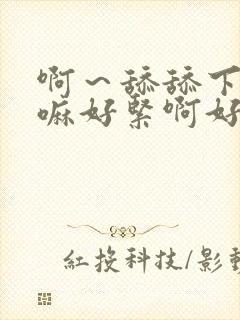 啊～舔舔下
嘛好緊啊好
紅投科技/影動